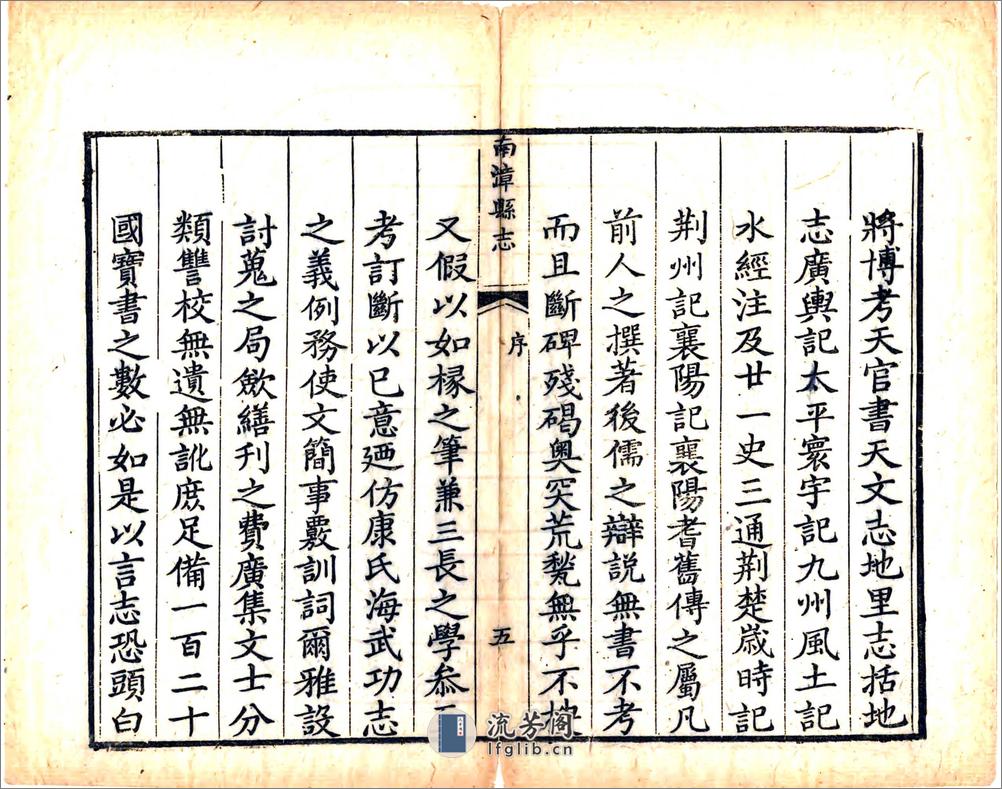 將博考天官書天文志地里志括地
志廣輿記太平寰宇記九州風土記
水經注及廿一史三通荆楚歲時記
荆州記襄陽記襄陽耆舊傳之屬凡
前人之撰著後儒之辯説無書不考
而且斷碑殘碣奥突荒甃無乎不
南漳縣志
序
五
又假以如椽之筆兼三長之學叅
考訂斷以已意廼仿康氏海武功志
之義例務使文簡事覈訓詞爾雅設
討蒐之局歛繕刊之費廣集文士分
類讐校無遺無訛庶足備一百二十
國寶書之數必如是以言志恐頭白
流芳阁
lfglib.cn